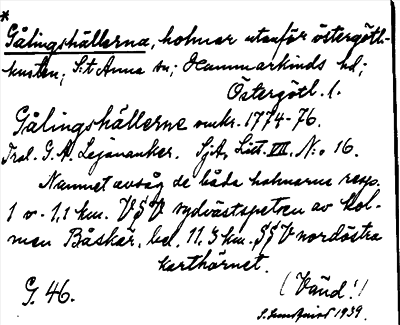 *
Gålingshällerna, holmar utanför östergötl.-
kusten; S:t Anna sn; Hammarkinds hd;
Östergötl. l.
Gålingshällerne omkr. 1774-76.
Trol. G. A. Lejonanker. SjA, Litt. VII. N:o 16.
Namnet avsåg de båda holmarna resp.
1 o. 1,1 km. VSV sydvästspetsen av hol-
men Båskär, bel. 11,3 km. SSV nordöstra
karthörnet.
G. 46. (Vänd!)
S. Lundqvist 1939.